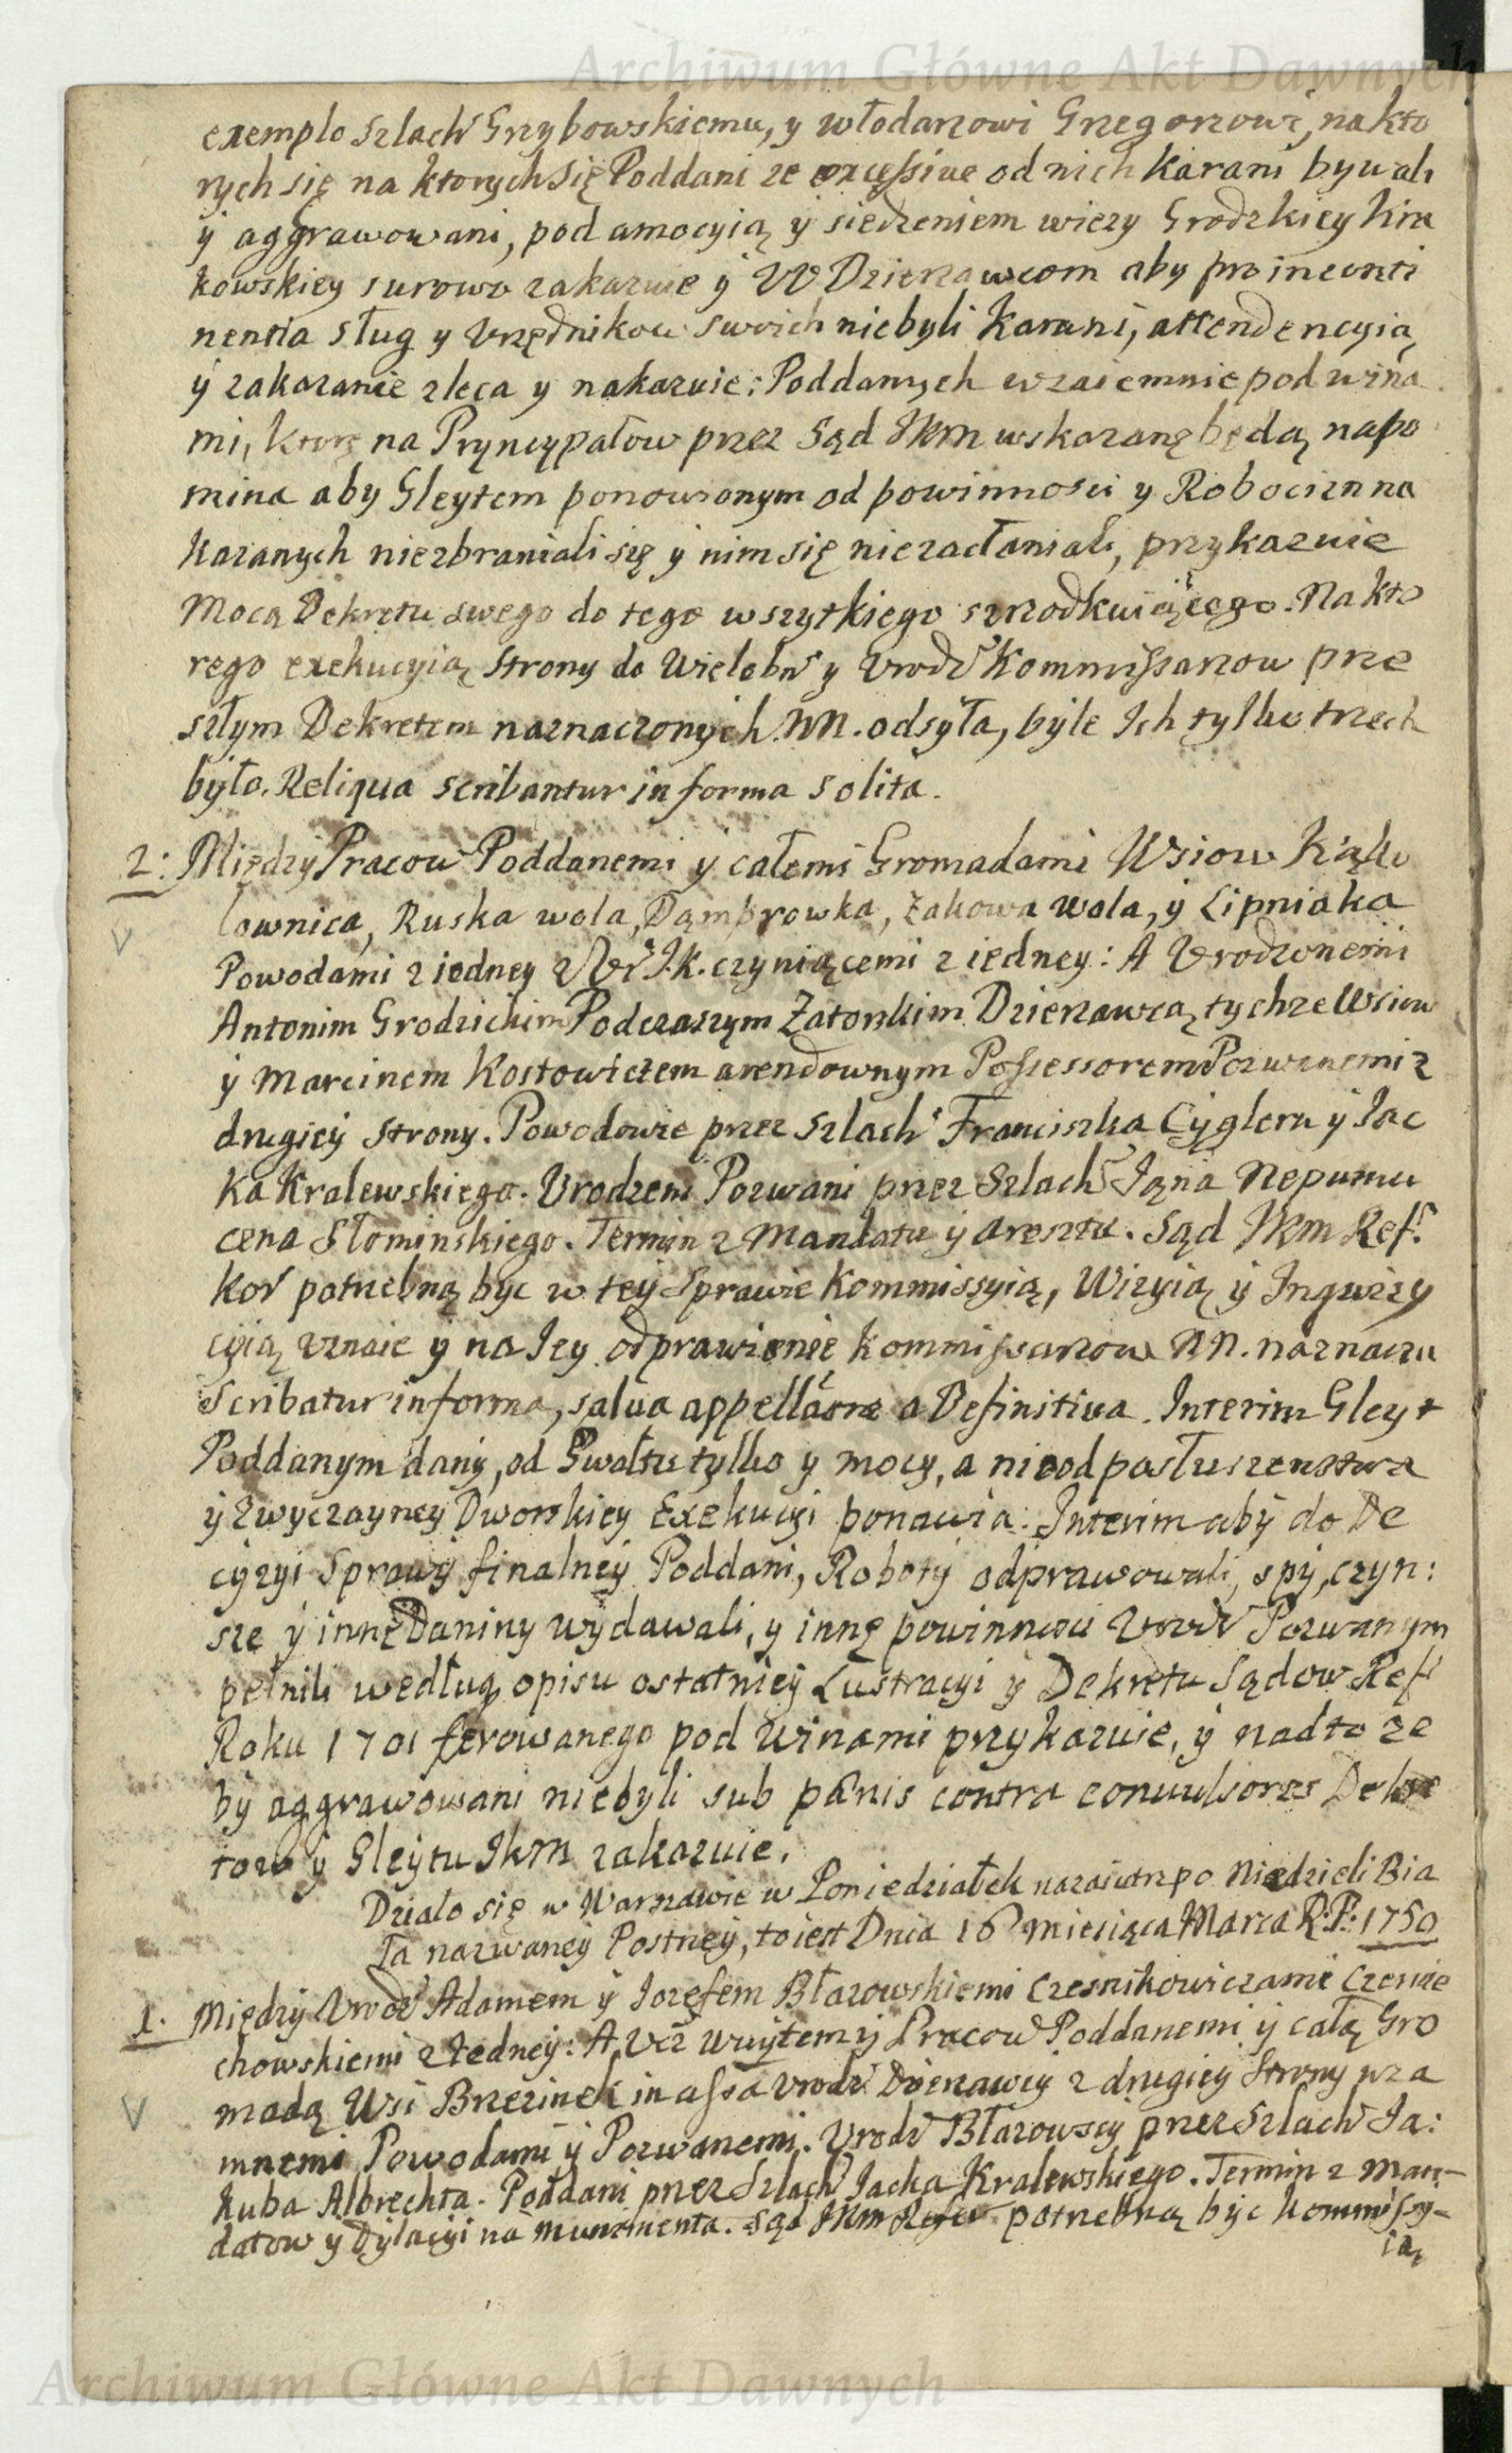 Archiwum Główne Akt Dawnych
exemplo Szlach Grzybowskiemu, y włodarzowi Grzegorzowi, na kto
rych się na ktorych się Poddani ze excessive od nich karani bywali
y aggrawowani, pod amocyią y siedzeniem wiezy Grodzkiey Kra
kowskiey surowo zakazuie y W Dzierzawcom aby pro inconti
nentia sług y Vrzędnikow swoich niebyli karani, attendencyią
y zakazanie zleca y nakazuie: Poddanych wzaiemnie pod wina
mi, ktorę na Pryncypałow przez Sąd JKM wskazanę będą napo
mina aby Gleytem ponowionym od powinnosci y Robocizn na
kazanych niezbraniali się y nim się niezasłaniali, przykazuie
Mocą Dekretu swego do tego wszytkiego srzodkuiącego. Na kto
rego exekucyią Strony do Wielebn y Vrodz Kommissarzow prze
szłym Dekretem naznaczonych NN. odsyła, byle Ich tylko trzech
było. Reliqua scribantur in forma solita.
2: Między Pracow Poddanemi y całemi Gromadami Wsiow Kąko
lownica, Ruska wola, Dąmbrowka, Zakowa Wola, y Lipniaka
Powodami z iedney J.K. czyniącemi z iedney: A Vrodzonemi
Antonim Grodzickim Podczaszym Zatorskim Dzierzawcą tychze Wsiow
y Marcinem Kostowiczem arendownym Possessorem Pozwanemi z
drugiey Strony. Powodowie przez Szlach Franciszka Cyglera y Jac
ka Kralewskiego. Vrodzeni Pozwani przez Szlach Jąna Nepumu
cena Słominskiego. Termin z Mandatu y aresztu. Sąd JKM Ref.
Kor potrzebną byc w tey Sprawie Kommissyią, Wizyią y Inqwizy
cyią vznaie y na Jey odprawienie Kommissarzow NN. naznacza
Scribatur in forma, salva appellaõne a Definitiva. Interim Gleyt
Poddanym dany, od Gwałtu tylko y mocy, a nie od posłuszenstwa
y Zwyczayney Dworskiey Exekucyi ponawia. Interim aby do De
cyzyi Sprawy finalney Poddani, Roboty odprawowali, spy, czyn:
sze y innę Daniny wydawali, y innę powinnosci Vrodz Pozwanym
pełnili według opisu ostatniey Lustracyi y Dekretu Sądow Ref
Roku 1701 ferowanego pod winami przykazuie, y nadto ze
by aggrawowani niebyli sub pænis contra convulsores Dekre
tow y Gleytu JKM zakazuie.
Działo się w Warszawie w Poniedziałek nazaiutrz po Niedzieli Bia
ła nazwaney Postney, to iest Dnia 16 Miesiąca Marca R: P: 1750
1. Między Vrodz Adamem y Jozefem Błazowskiemi Czesnikowiczami Czernie
chowskiemi z Iedney: A Vcz Woytem y Pracow Poddanemi y całą Gro
madą Wsi Brzezinek in assa Vrodz Dzierzawcy z drugiey Strony wza
mnemi Powodami y Pozwanemi. Vrodz Błazowscy przez Szlach Ja:
kuba Albrechta. Poddani przez Szlach Jacka Kralewskiego. Termin z Man-
datow y Dylacyi na munimenta. Sąd JKM Refer potrzebną byc Kommissy-
ią,
Archiwum Główne Akt Dawnych